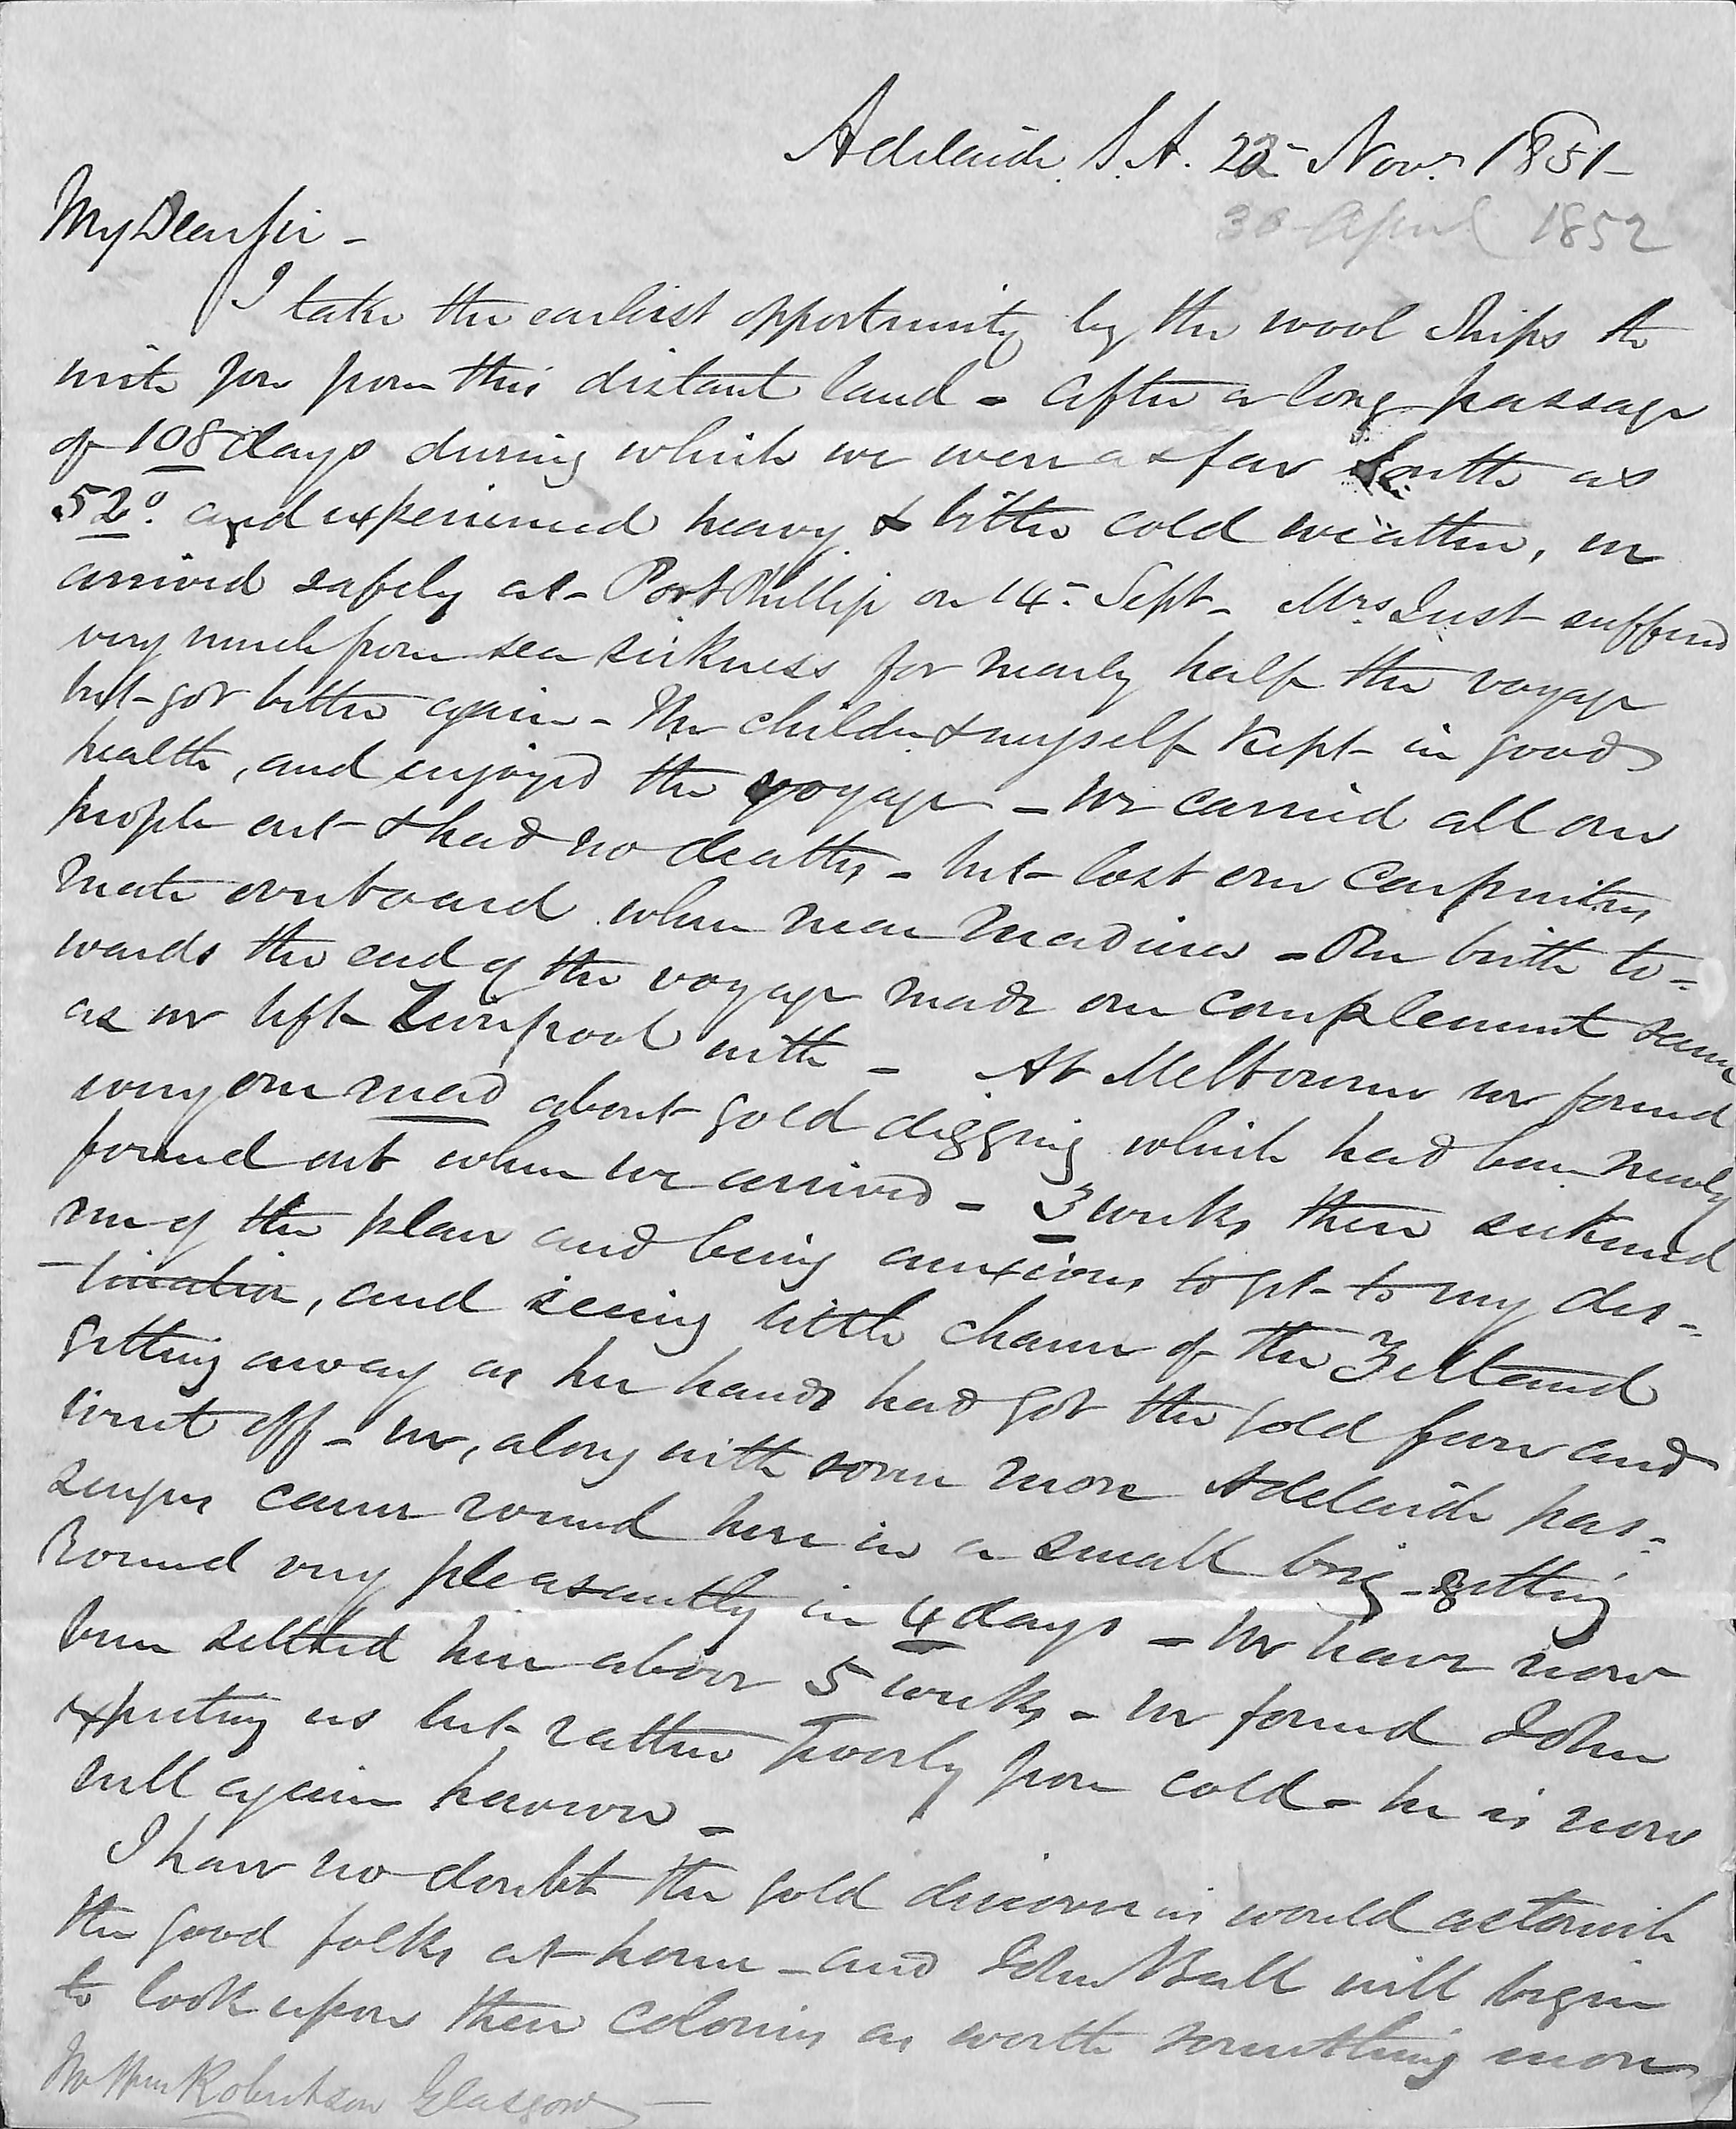 Adelaide. S.A. 22 Novr. 1851 –
30 April 1852
My Dear Sir –
I take the earliest opportunity by the wool ships to
write you from this distant land – after a long passage
of 108 days during which we were as far South as
52°. and experienced heavy & bitter cold weather, we
arrived safely at Port Phillip on 14 Sept – Mrs. Just suffered
very much from sea sickness for nearly half the voyage
but got better again – The children & myself kept in good
health, and enjoyed the voyage – We carried all our
people out & had no deaths – but lost our Carpenters
mate overboard when near Madeira – One birth to-
wards the end of the voyage made our complement same
as we left Liverpool with – At Melbourne we found
every one mad about gold digging which had been newly
found out when we arrived – 3 weeks there sickened
me of the place and being anxious to get to my des-
-tination, and seeing little chance of the Zetland
getting away as her hands had got the gold fever and
went off – we, along with some more Adelaide pas-
sengers came round here in a small brig – getting
round very pleasantly in 4 days – We have now
been settled here above 5 weeks – we found John
expecting us but rather Poorly from cold – he is now
well again however –
I have no doubt the gold discoveries would astonish
the good folks at home – and John Bull will begin
to look upon these colonies as worth something more
Mr Wm Robertson Glasgow –